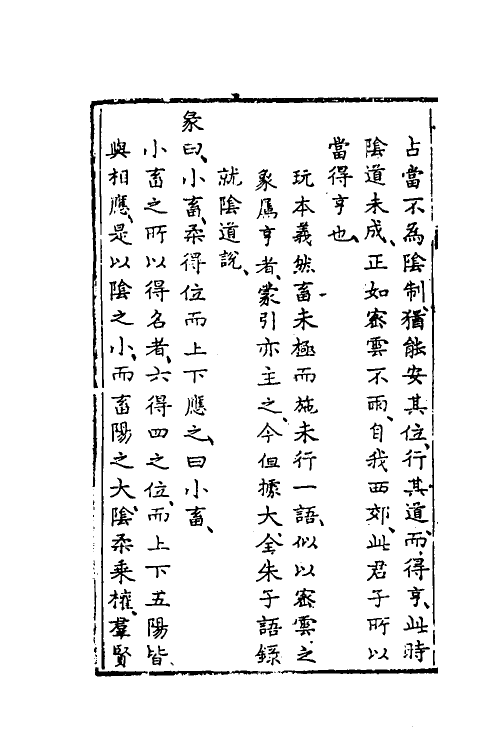 占當不為陰制、猶能安其位、行其道、而得亨、此時
陰道未成、正如密雲不雨、自我西郊、此君子所以
當得亨也、
玩本義然畜未極而施未行一語、似以密雲之
象屬亨者、蒙引亦主之、今但據大全朱子語錄
就陰道說、
彖曰、小畜、柔得位而上下應之、曰小畜、
小畜之所以得名者、六得四之位、而上下五陽皆
與相應、是以陰之小、而畜陽之大、陰柔乘權、羣賢